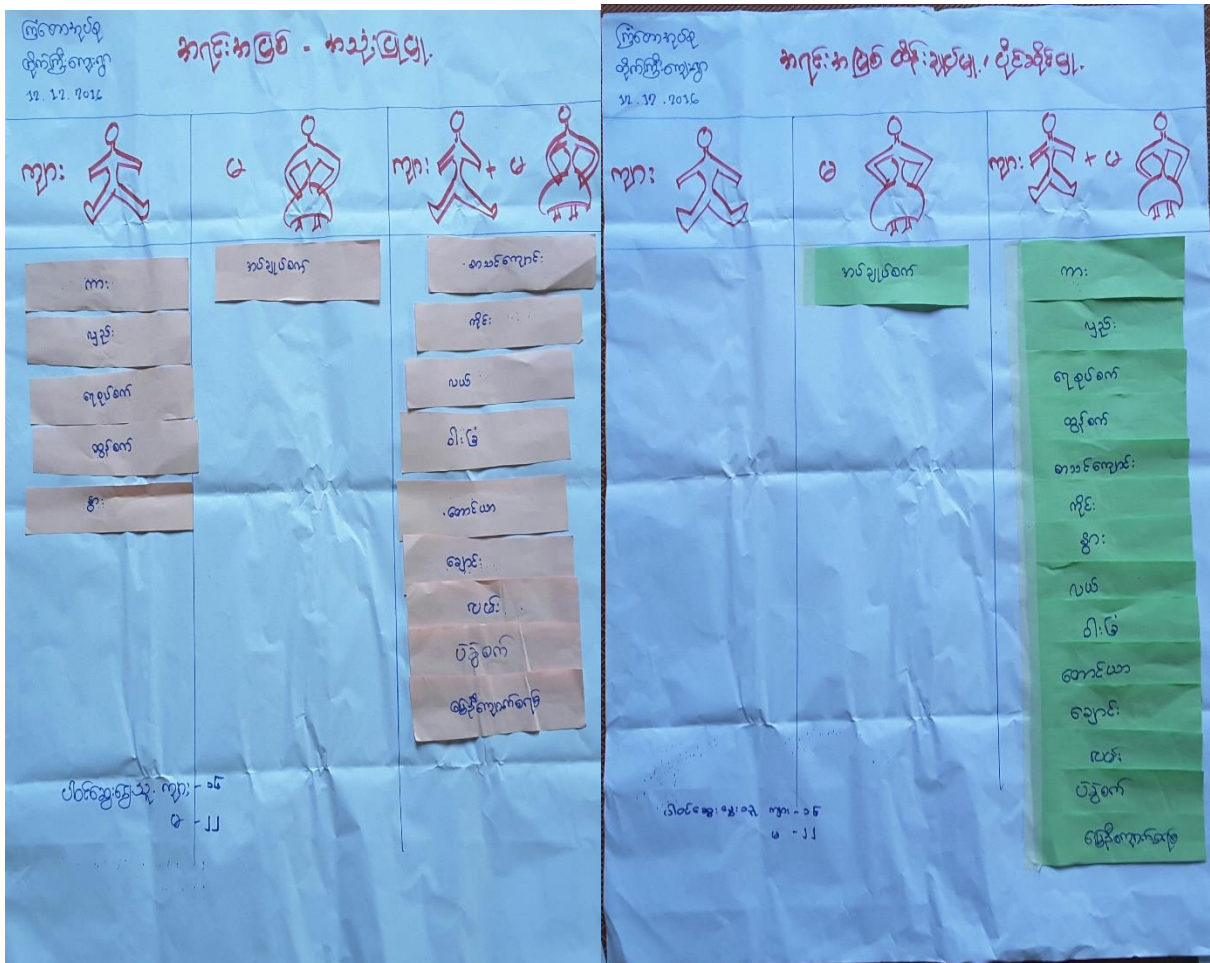 ကြံတောအုပ်စု
တိုက်ကြီးကျေးရွာ
12.12.2016
အရင်းအမြစ် - အသုံးပြုမှု.
ကျား
မ
ကျား + မ
ကား
လှည်း
ရေစုပ်စက်
ထွန်စက်
နွား
အပ်ချုပ်စက်
စာသင်ကျောင်း
ကိုင်း
လယ်
ဝါးခြံ
တောင်ယာ
ချောင်း
လမ်း
ပဲခွဲစက်
မြေဩကျောက်စရစ်
ပါဝင်ဆွေးနွေးသူ ကျား - ၁၆
မ - ၂၂
ကြံတောအုပ်စု
တိုက်ကြီးကျေးရွာ
12.12.2016
အရင်းအမြစ် ထိန်းချုပ်မှု. / ပိုင်ဆိုင်မှု.
ကျား
မ
ကျား + မ
အပ်ချုပ်စက်
ကား
လှည်း
ရေစုပ်စက်
ထွန်စက်
စာသင်ကျောင်း
ကိုင်း
နွား
လယ်
ဝါးခြံ
တောင်ယာ
ချောင်း
လမ်း
ပဲခွဲစက်
ပါဝင်ဆွေးနွေးသူ ကျား - ၁၆
မ - ၂၂